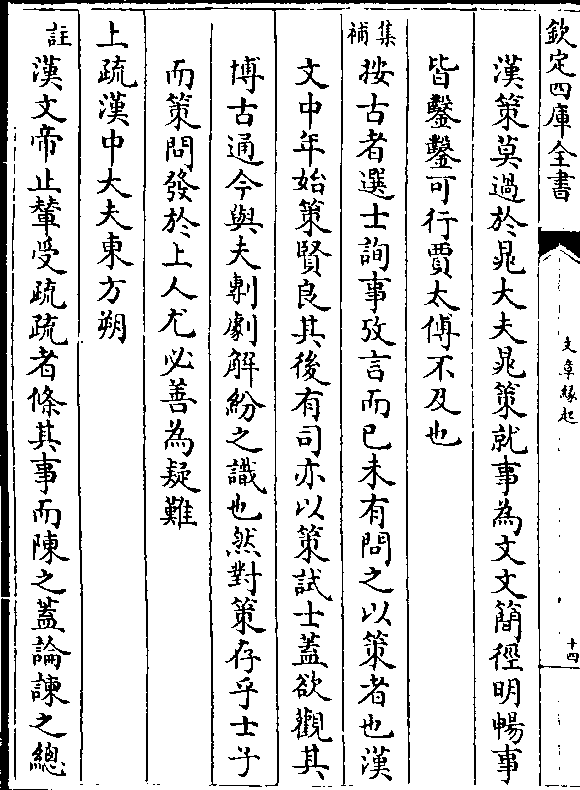 欽定四庫全書
文章緣起
十四
漢策莫過於晁大夫晁策就事為文文簡徑明暢事
皆鑿鑿可行賈太傅不及也
集補
按古者選士詢事攷言而已未有問之以策者也漢
文中年始策賢良其後有司亦以策試士蓋欲觀其
博古通今與夫剸劇解紛之識也然對策存乎士子
而策問發於上人尤必善為疑難
上疏漢中大夫東方朔
註
漢文帝止輦受疏疏者條其事而陳之蓋論諫之總